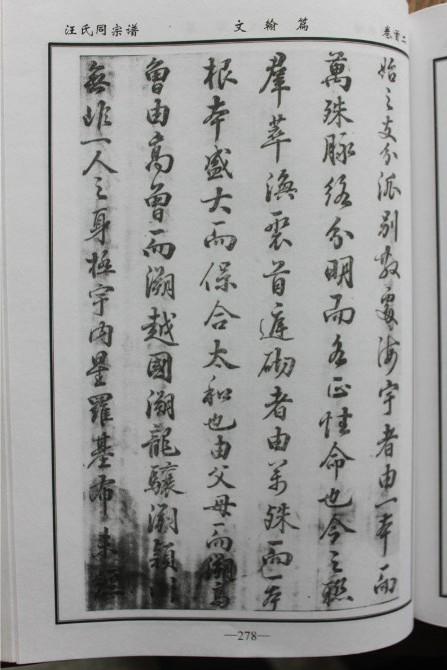 汪氏同宗谱
文翰篇
卷首二
始之支分派别散處海宇者由一本而
萬殊脉絡分明而各正性命也今之聯
羣萃渙裂首庭砌者由萬殊而一本
根本盛大而保合太和也由父母而溯高
曾由高曾而溯越國溯龍驤溯穎川
無非一人之身極宇内星羅基布東
—278—